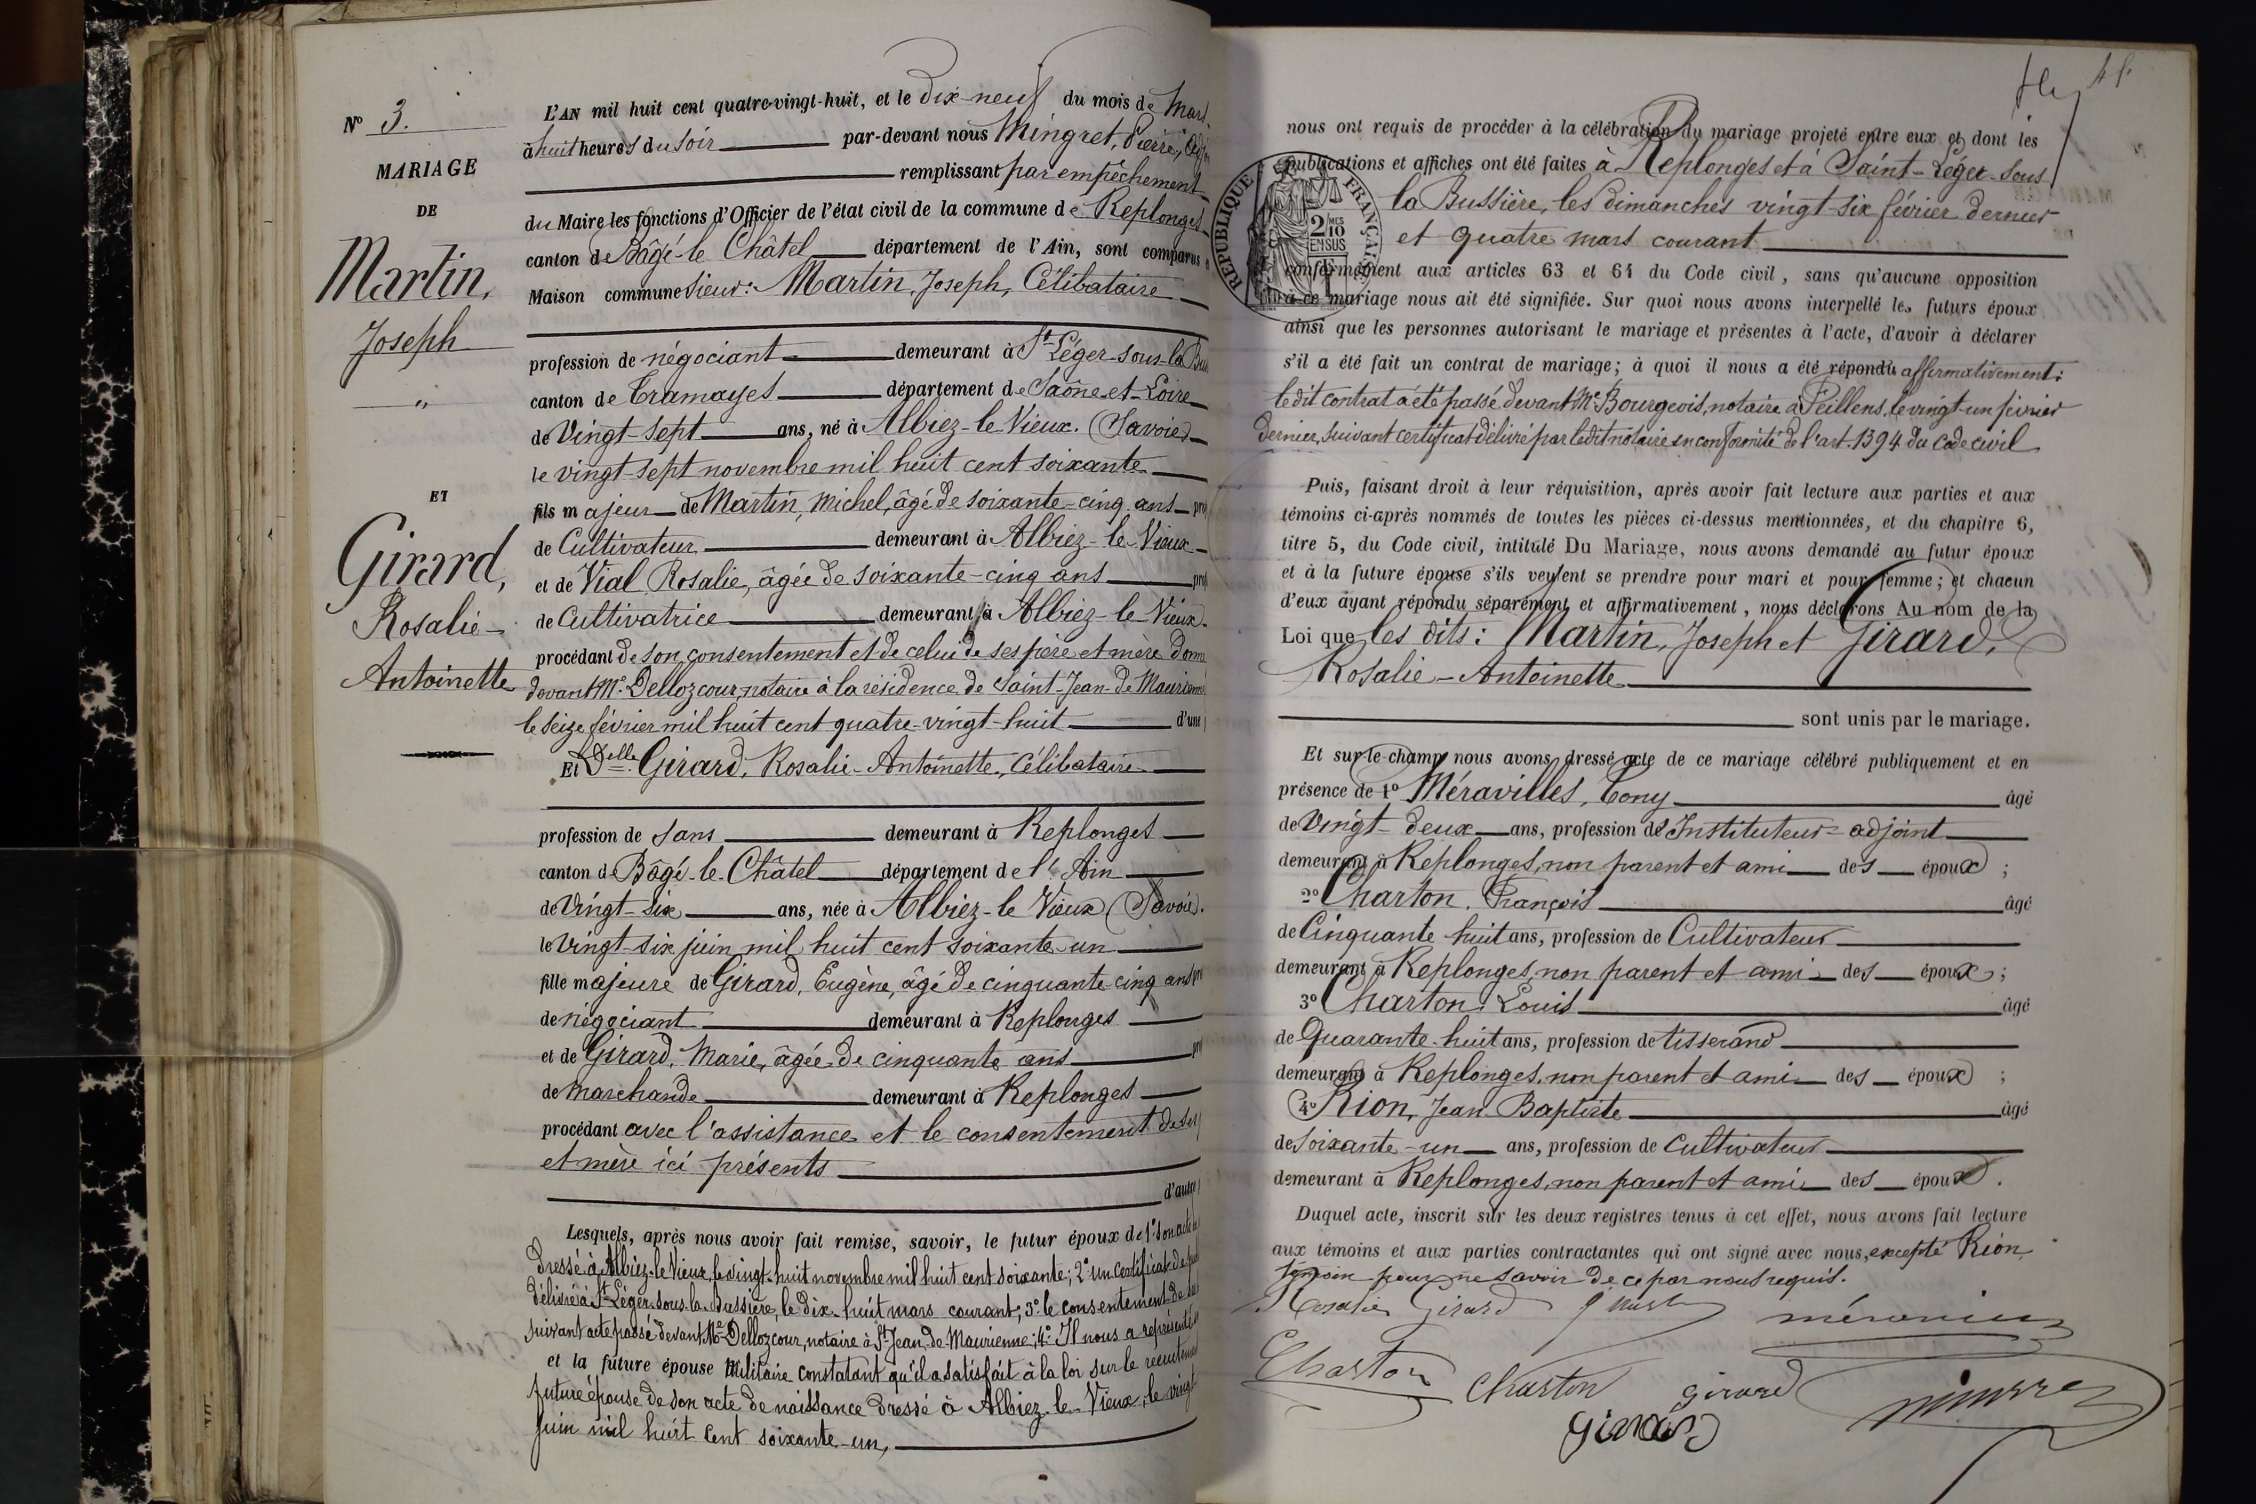 N° 3.
MARIAGE
DE
Martin,
Joseph
"
ET
Girard,
Rosalie-
Antoinette
L'AN mil huit cent quatre-vingt-huit, et le dix-neuf du mois de Mars
à huit heures du soir par-devant nous Mingret, Pierre,
remplissant par empêchement
du Maire les fonctions d'Officier de l'état civil de la commune de Replonges
canton de Bâgé-le Châtel département de l'Ain, sont comparus
Maison commune sieur: Martin, Joseph, Célibataire
profession de négociant demeurant à St Léger-sous-la
canton de Tramayes département de Saône-et-Loire
de Vingt-sept ans, né à Albiez-le Vieux. (Savoie)
le vingt-sept novembre mil huit cent soixante
fils majeur de Martin, Michel, âgé de soixante-cinq ans
de Cultivateur demeurant à Albiez-le-Vieux
et de Vial Rosalie, âgée de soixante-cinq ans
de Cultivatrice demeurant à Albiez-le-Vieux.
procédant de son consentement et de celui de ses père et mère
devant Me Dellozcour, notaire à la résidence de Saint-Jean-de Maurienne
le seize février mil huit cent quatre-vingt-huit d'une
Et Delle Girard, Rosalie-Antoinette, Célibataire
profession de sans demeurant à Replonges
canton de Bâgé-le-Châtel département de l'Ain
de Vingt-six ans, née à Albiez-le Vieux (Savoie).
le vingt-six juin mil huit cent soixante-un
fille majeure de Girard, Eugène, âgé de cinquante-cinq ans
de négociant demeurant à Replonges
et de Girard, Marie, âgée de cinquante ans
de marchande demeurant à Replonges
procédant avec l'assistance et le consentement de ses
et mère ici présents
d'autre
Lesquels, après nous avoir fait remise, savoir, le futur époux de 1° son acte
dressé à Albiez-le Vieux, le vingt-huit novembre mil huit cent soixante; 2° un certificat de
délivré à St Léger-sous-la-Bussière, le dix-huit mars courant; 3° le consentement de
suivant acte passé devant Me Dellozcour, notaire à St Jean-de-Maurienne; 4° Il nous a représenté
et la future épouse militaire constatant qu'il a satisfait à la loi sur le recrutement
future épouse de son acte de naissance dressé à Albiez-le-Vieux, le vingt
juin mil huit cent soixante-un,
nous ont requis de procéder à la célébration du mariage projeté entre eux et dont les
publications et affiches ont été faites à Replonges et à Saint-Léger-sous-
la Bussière, les dimanches vingt-six février dernier
et quatre mars courant
conformément aux articles 63 et 64 du Code civil, sans qu'aucune opposition
à ce mariage nous ait été signifiée. Sur quoi nous avons interpellé les futurs époux
ainsi que les personnes autorisant le mariage et présentes à l'acte, d'avoir à déclarer
s'il a été fait un contrat de mariage; à quoi il nous a été répondu affirmativement:
le dit contrat a été passé devant Me Bourgeois, notaire à Peillens, le vingt-un février
dernier, suivant certificat délivré par ledit notaire en conformité de l'art. 1394 du code civil
Puis, faisant droit à leur réquisition, après avoir fait lecture aux parties et aux
témoins ci-après nommés de toutes les pièces ci-dessus mentionnées, et du chapitre 6,
titre 5, du Code civil, intitulé Du Mariage, nous avons demandé au futur époux
et à la future épouse s'ils veulent se prendre pour mari et pour femme; et chacun
d'eux ayant répondu séparément et affirmativement, nous déclarons Au nom de la
Loi que les dits: Martin, Joseph et Girard,
Rosalie-Antoinette
sont unis par le mariage.
Et sur-le-champ nous avons dressé acte de ce mariage célébré publiquement et en
présence de 1° Méravilles, Tony âgé
de Vingt-deux ans, profession d'Instituteur-adjoint
demeurant à Replonges, non parent et ami des époux;
2° Charton, François âgé
de Cinquante huit ans, profession de Cultivateur
demeurant à Replonges, non parent et ami des époux;
3° Charton, Louis âgé
de Quarante-huit ans, profession de tisserand
demeurant à Replonges, non parent et ami des époux;
4° Rion, Jean-Baptiste âgé
de soixante-un ans, profession de cultivateur
demeurant à Replonges, non parent et ami des époux.
Duquel acte, inscrit sur les deux registres tenus à cet effet, nous avons fait lecture
aux témoins et aux parties contractantes qui ont signé avec nous, excepté Rion
témoin pour ne savoir de ce par nous requis.
Rosalie Girard
Charton Charton Girard
Girard
RÉPUBLIQUE FRANÇAISE
2/10 EN SUS